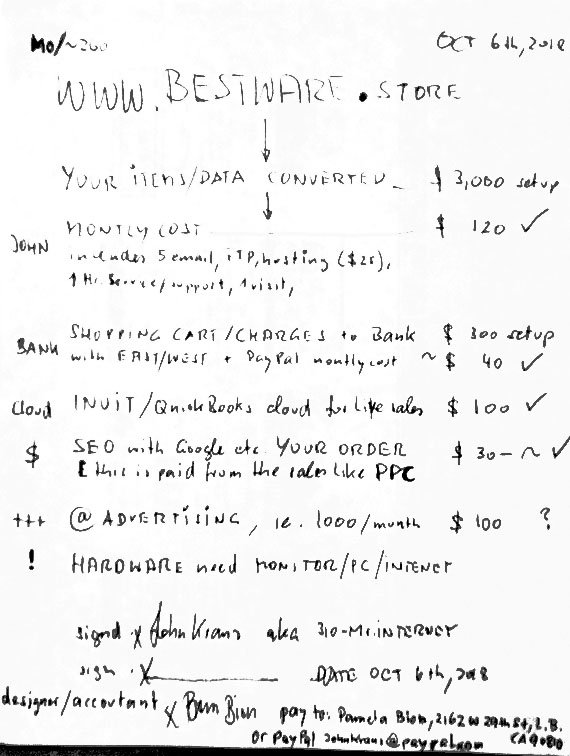 Mo/~200 OCT 6th, 2018
WWW.BESTWARE.STORE
YOUR ITEMS/DATA CONVERTED $ 3,000 setup
JOHN MONTLY COST $ 120 ✓
includes 5 email, FTP, hosting ($25),
1 Hr. Service/support, 1 visit,
SHOPPING CART/CHARGES to Bank $ 300 setup
BANK with EAST/WEST + PayPal montly cost ~ $ 40 ✓
Cloud INUIT/QuickBooks cloud for live sales $ 100 ✓
$ SEO with Google etc. YOUR ORDER $ 30-~ ✓
[ this is paid from the sales like PPC
+++ @ ADVERTISING, ie. 1000/month $ 100 ?
! HARDWARE need MONITOR/PC/INTENET
signd x John Krans aka 310-Mr.INTERNET
sign x DATE OCT 6th, 2018
designer/accoutant x pay to: Pamela 2162 W 29th St, L.B.
or PayPal johnkrans@paypal.com CA 90810